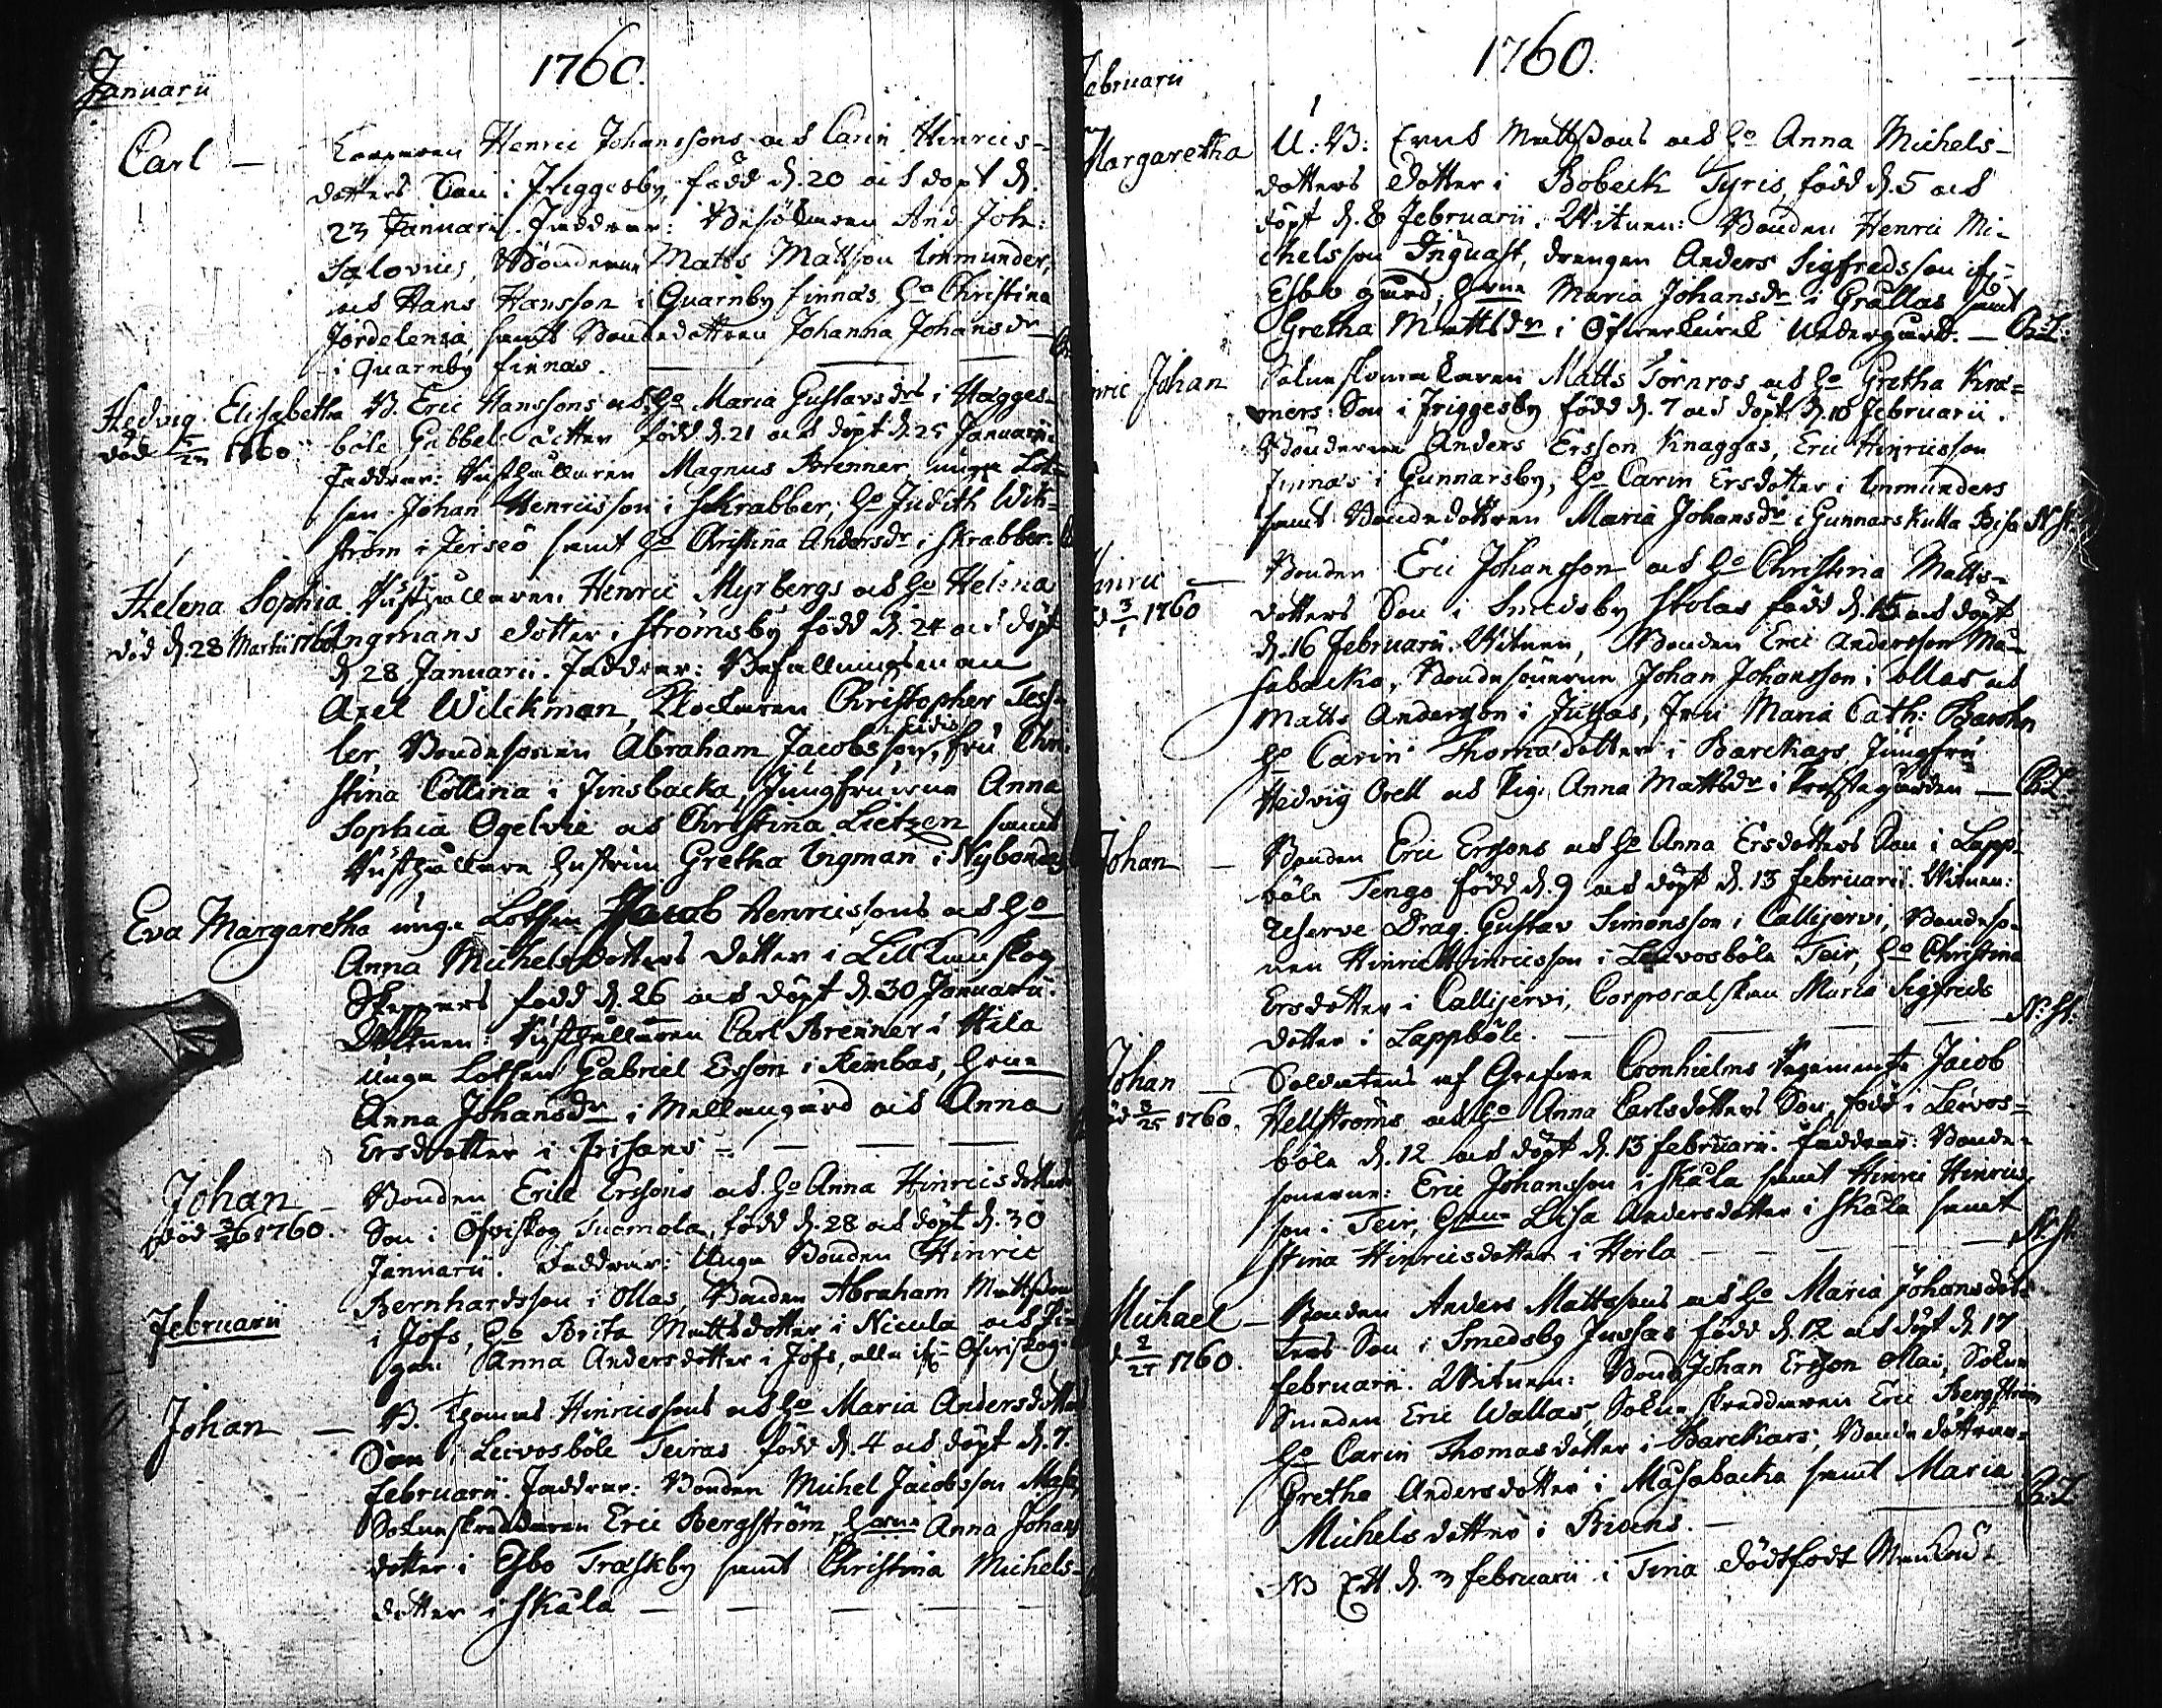 1760.
Januarii
Carl — Henric Johanssons och Carin Hinrics-
dotters Son i Friggesby, född d. 20 och döpt d.
23 Januarii. Faddrar: And. Joh:
Salovius, Bönderne Matts Mattson Unmunder,
och Hans Hansson i Quarnby Finnas, Ho Christina
Jordelensia, samt Bondedottren Johanna Johansdr
i Quarnby Finnas.
Hedvig Elisabetha B. Eric Hanssons och Ho Maria Gustavsdrs i Hagges-
död 1760. böle Gabbels dotter född d. 21 och döpt d. 25 Januarii.
Faddrar: Rusthållaren Magnus Brenner, unge Lot-
sen Johan Henricsson i Skrabber, Ho Judith Wik-
ström i Jerseö samt Ho Christina Andersdr i Skrabber.
Helena Sophia Rusthållaren Henric Myrbergs och Ho Helena
död d. 28 Martii 1760 Ingmans dotter i Strömsby född d. 24 och döpt
d. 28 Januarii. Faddrar: Befallningsman
Axel Wilckman, Klockaren Christopher Tess-
ler, Bondesonen Abraham Jacobsson, fru Chri-
stina Collina i Finsbacka, Jungfrurna Anna
Sophia Ogelvie och Christina Lietzen samt
Rusthållare hustrun Gretha Vigman i Nybondas
Eva Margaretha unge Lotsen Jacob Henricssons och Ho
Anna Michelsdotters dotter i Lill Kanskog
Skeppars född d. 26 och döpt d. 30 Januarii.
Vitnen: Rusthållaren Carl Brenner i Hila
Unge Lotsen Gabriel Ersson i Rembas, Hrna
Anna Johansdr i Mellangård och Anna
Ersdotter i Frisans —
Johan — Bonden Eric Erssons och Ho Anna Hinricsdotters
död 1760. Son i Öfvitskog Tuomola, född d. 28 och döpt d. 30
Januarii. Faddrar: Unge Bonden Hinric
Bernhardsson i Ollas, Bonden Abraham Mattsson
Februarii i Jofs, Ho Brita Mattsdotter i Nicula och Pi-
gan Anna Andersdotter i Jofs, alla ifr. Öfvitskog.
Johan — B. Thomas Hinricssons och Ho Maria Andersdotters
Son i Leivosböle Teiras född d. 4 och döpt d. 7.
Februarii. Faddrar: Bonden Michel Jacobsson
Sokneskreddaren Eric Bergström, Hrna Anna Johans
dotter i Esbo Träskby samt Christina Michels-
dotter i Skala —
1760.
Februarii
Margaretha U: B: Mattssons och Ho Anna Michels-
dotters dotter i Bobeck Tyris, född d. 5 och
döpt d. 8 Februarii. Witnen: Bonden Henric Mi-
chelsson Inguast, drengen Anders Sigfredsson ifr
Esbo gård, Hrna Maria Johansdr i Grällas samt
Gretha Mattsdr i Öfverkurck Undergård. —
Johan Sokneskomakaren Matts Törnros och Ho Gretha Krä-
mers Son i Friggesby född d. 7 och döpt d. 10 Februarii.
Bönderne Anders Ersson Knaggas, Eric Hinricsson
Finnas i Gunnarsby, Ho Carin Ersdotter i Unmunders
samt Bondedottren Maria Johansdr i Gunnarskulla N: St.
Hinric — Bonden Eric Johansson och Ho Christina Matts-
1760 dotters Son i Smedsby Skolas född d. 15 och döpt
d. 16 Februarii. Witnen, Bonden Eric Andersson Må-
sabacka, Bondesönerne Johan Johansson i Ollas och
Matts Andersson i Jussas, Fru Maria Cath:
Ho Carin Thomadotter i Barckars, Jungfru
Hedvig Orell och Pig. Anna Mattsdr i Prestegården —
Johan — Bonden Eric Erssons och Ho Anna Ersdotters Son i Lapp-
böle Tengo född d. 9 och döpt d. 13 Februarii. Witnen:
Reserve Drag. Gustav Simonsson i Callijervi, Bondeso-
nen Hinric Hinricsson i Leivosböle Teir, Ho Christina
Ersdotter i Callijervi, Corporalskan Maria Sigfreds
dotter i Lappböle. — N: St:
Johan — Soldatens af Grefve Cronhielms Regemente Jacob
1760. Hellströms och Ho Anna Carlsdotters Son född i Leivos-
böle d. 12 och döpt d. 13 Februarii. Faddrar: Bonde-
sönerne: Eric Johansson i Skala samt Hinric Hinrics
son i Teir, Hrna Lisa Andersdotter i Skala samt
Stina Hinricsdotter i Herla — N: St:
Michael — Bonden Anders Mattssons och Ho Maria Johansdot-
1760. ters Son i Smedsby Jussas född d. 12 och döpt d. 17
Februarii. Witnen: Bond. Johan Ersson Ollas, Sokne
Smeden Eric Wallas, Sokneskreddaren Eric Bergström
Ho Carin Thomasdotter i Barckars, Bondedöttrar-
Gretha Andersdotter i Måsabacka samt Maria
Michelsdotter i Bisens. —
NB Ett d. 3 Februarii i Tina dödfödt